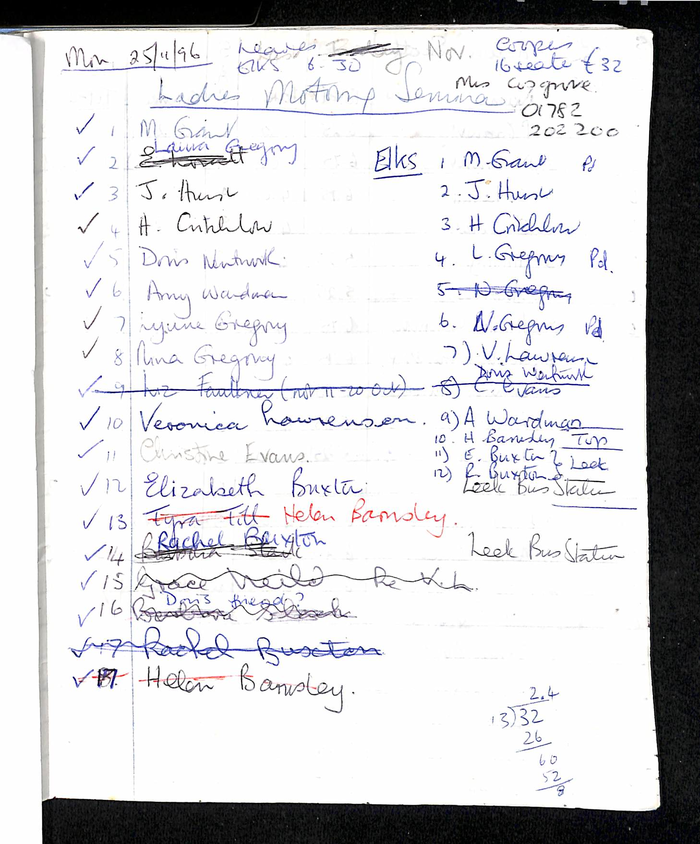 Mon 25/11/96 Leaves Nov. Coopers
Elks 6.30 16 seate £32
Ladies Motoring Seminar Mrs Cosgrove
01782
202 200
✓ 1 M Grant
✓ 2 Laura Gregory
✓ 3 J. Hurst
✓ 4 H. Critchlow
✓ 5 Doris
✓ 6 Amy Wardman
✓ 7 Lynne Gregory
✓ 8 Nina Gregory
✓ 9 Liz Faulkner (not 11-20 Oct)
✓ 10 Veronica Lawrenson.
✓ 11 Christine Evans.
✓ 12 Elizabeth Buxton
✓ 13 Tyra Till Helen Barnsley.
✓ 14 Rachel Buxton
✓ 15 Grace
✓ 16 Doris friend?
✓ 17 Rachel Buxton
✓ 17 Helen Barnsley.
Elks 1 M. Grant Pd
2. J. Hurst
3. H Critchlow
4. L. Gregory Pd.
5. N. Gregory
6. N. Gregory Pd
7) V. Lawrenson
Doris
8) C. Evans
9) A Wardman
10. H Barnsley Top
11) E. Buxton } Leek
12) R. Buxton
Leek Bus Station
Leek Bus Station
2.4
13)32
26
60
52
8